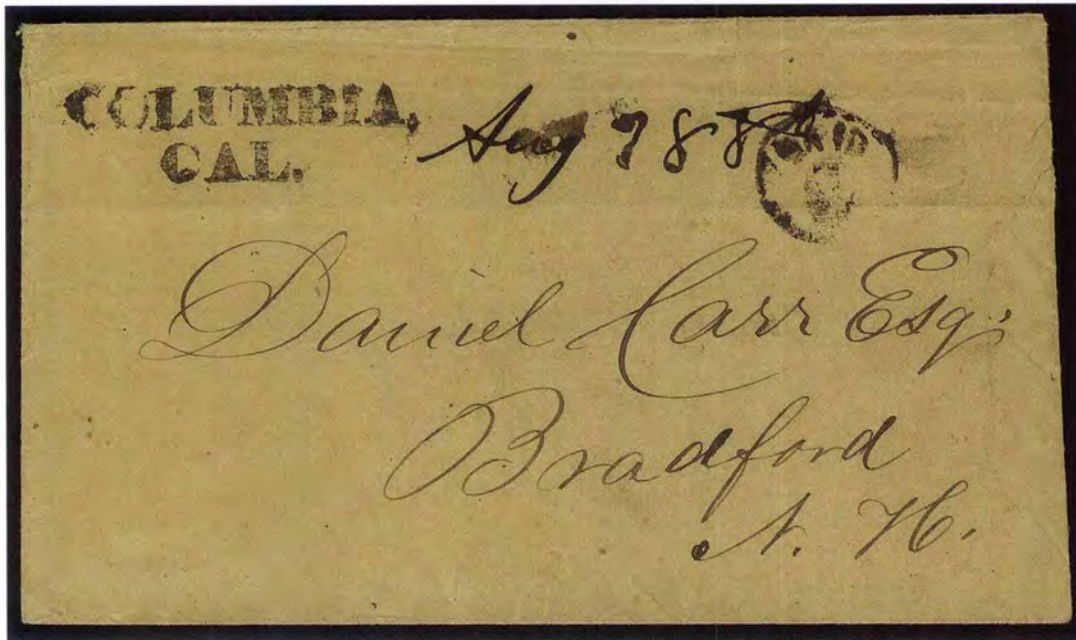 COLUMBIA,
CAL.
Aug
PAID
Daniel Carr Esq.
Bradford
N. H.